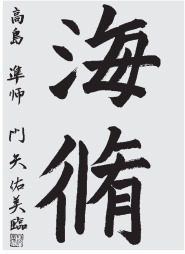 海脩
高島 準師 門矢佑美臨